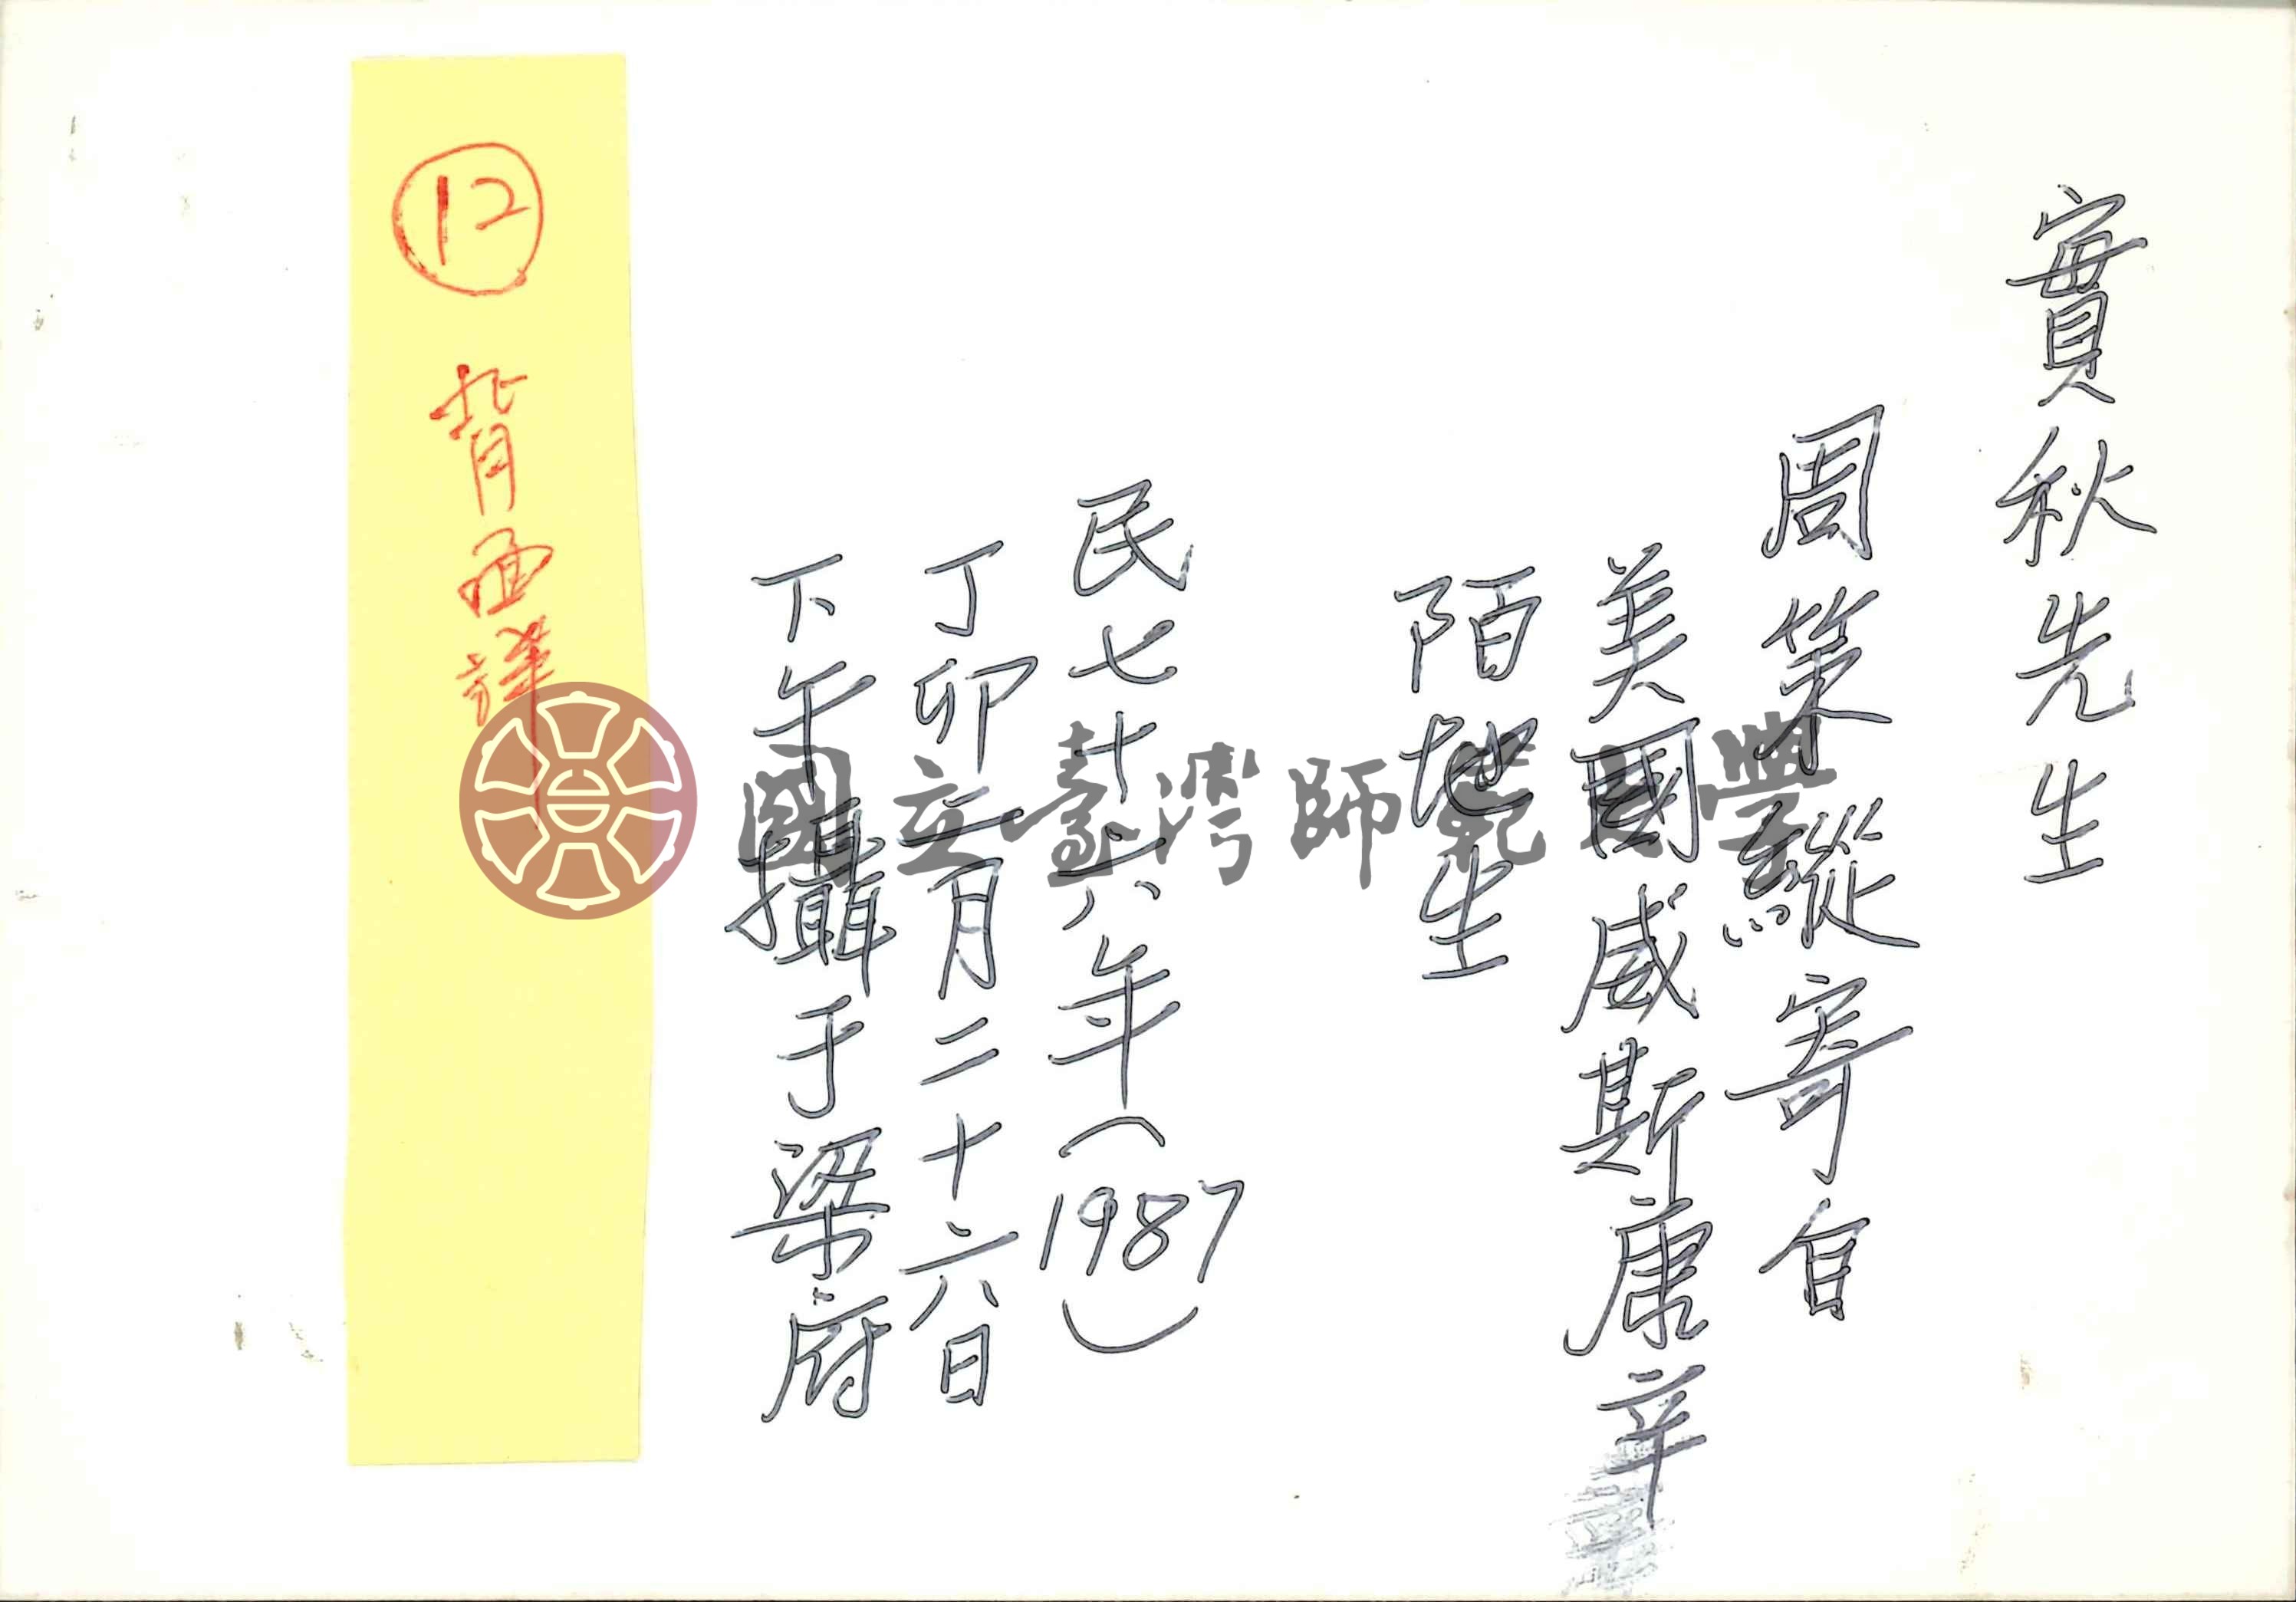 實秋先生
周策縱寄自
美國威斯康辛
陌地生
民七十六年(1987)
丁卯二月二十六日
下午攝于梁府
⑫ 背面詳
國立臺灣師範大學